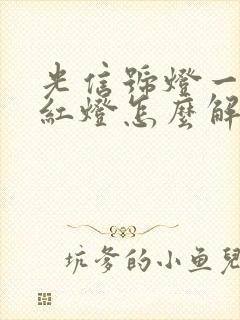 光信號燈一
紅燈怎麼解
坑爹的小鱼兒